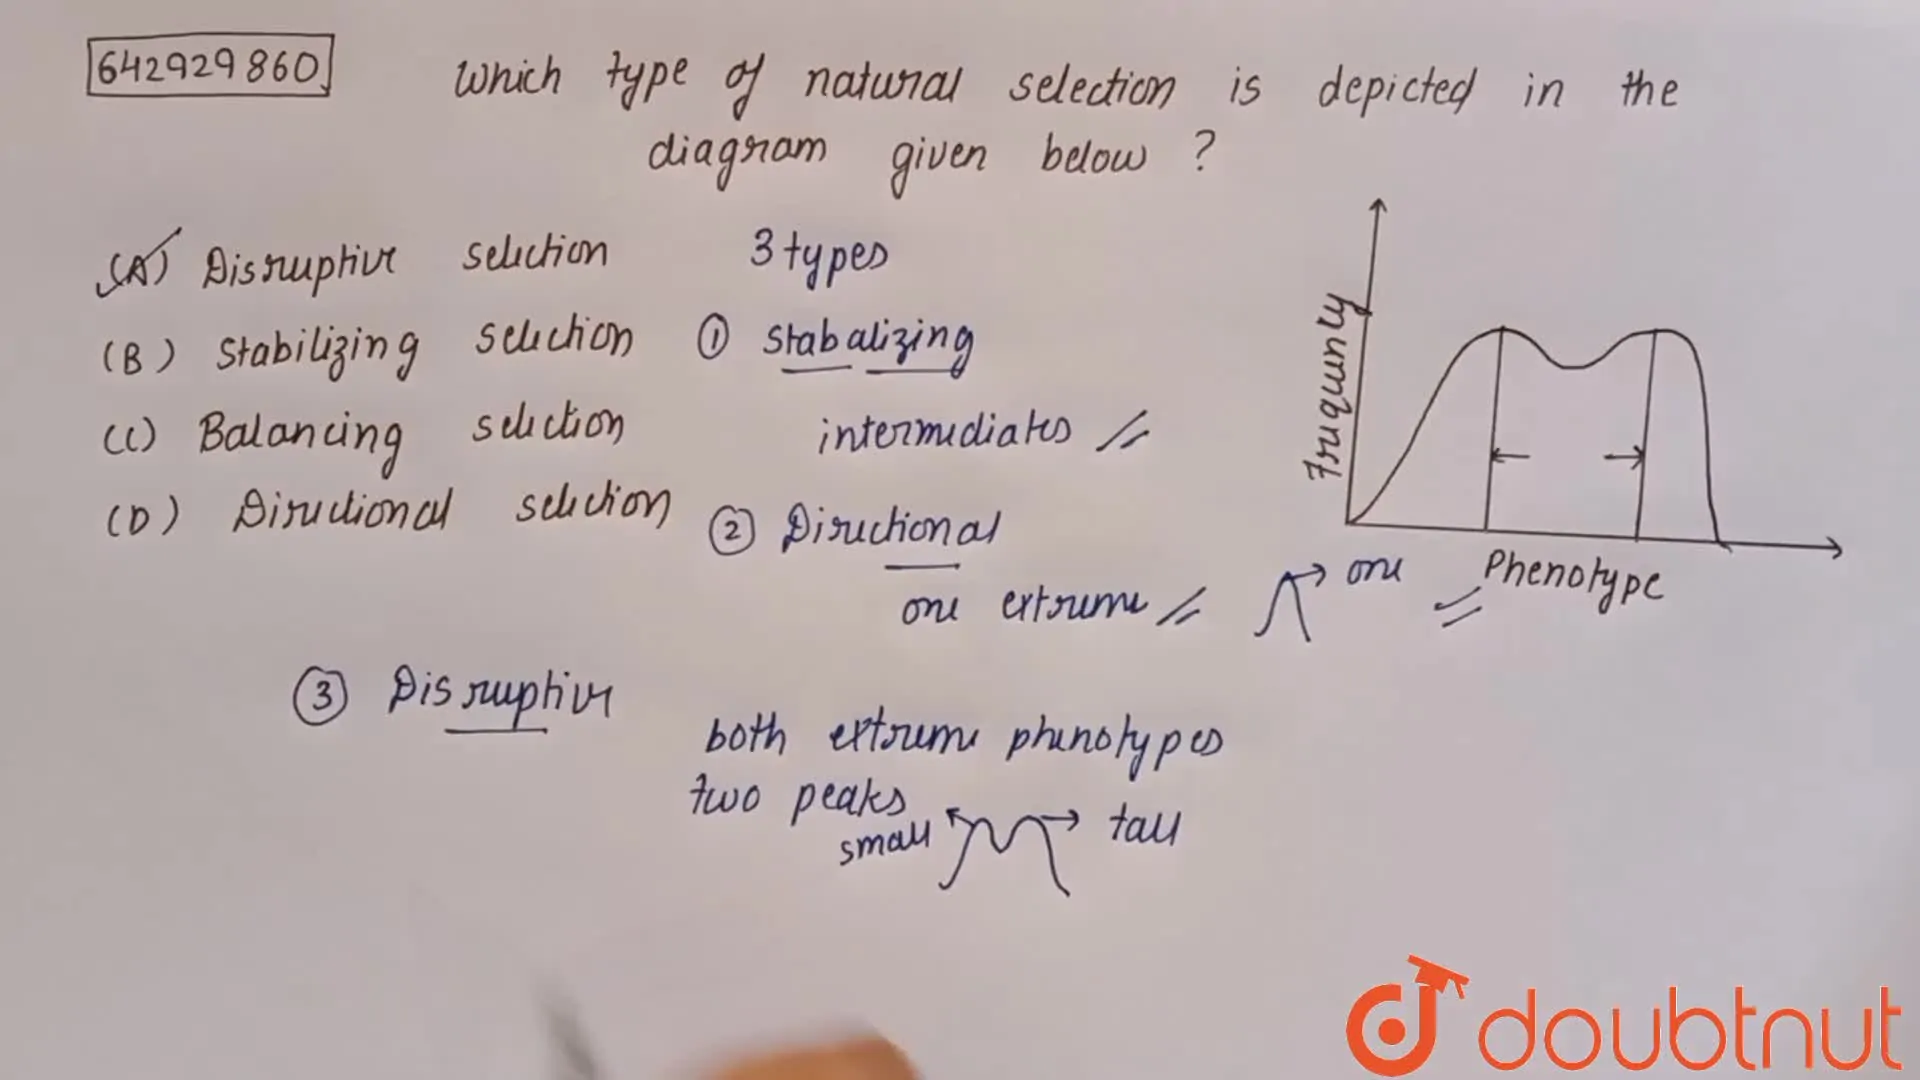 642929860
Which type of natural selection is depicted in the
diagram given below ?
(A) Disruptive selection
(B) Stabilizing selection
(C) Balancing selection
(D) Directional selection
3 types
① Stabalizing
intermediates
② Directional
one extreme
one
③ Disruptive
both extreme phenotypes
two peaks
small
tall
Frequency
Phenotype
doubtnut